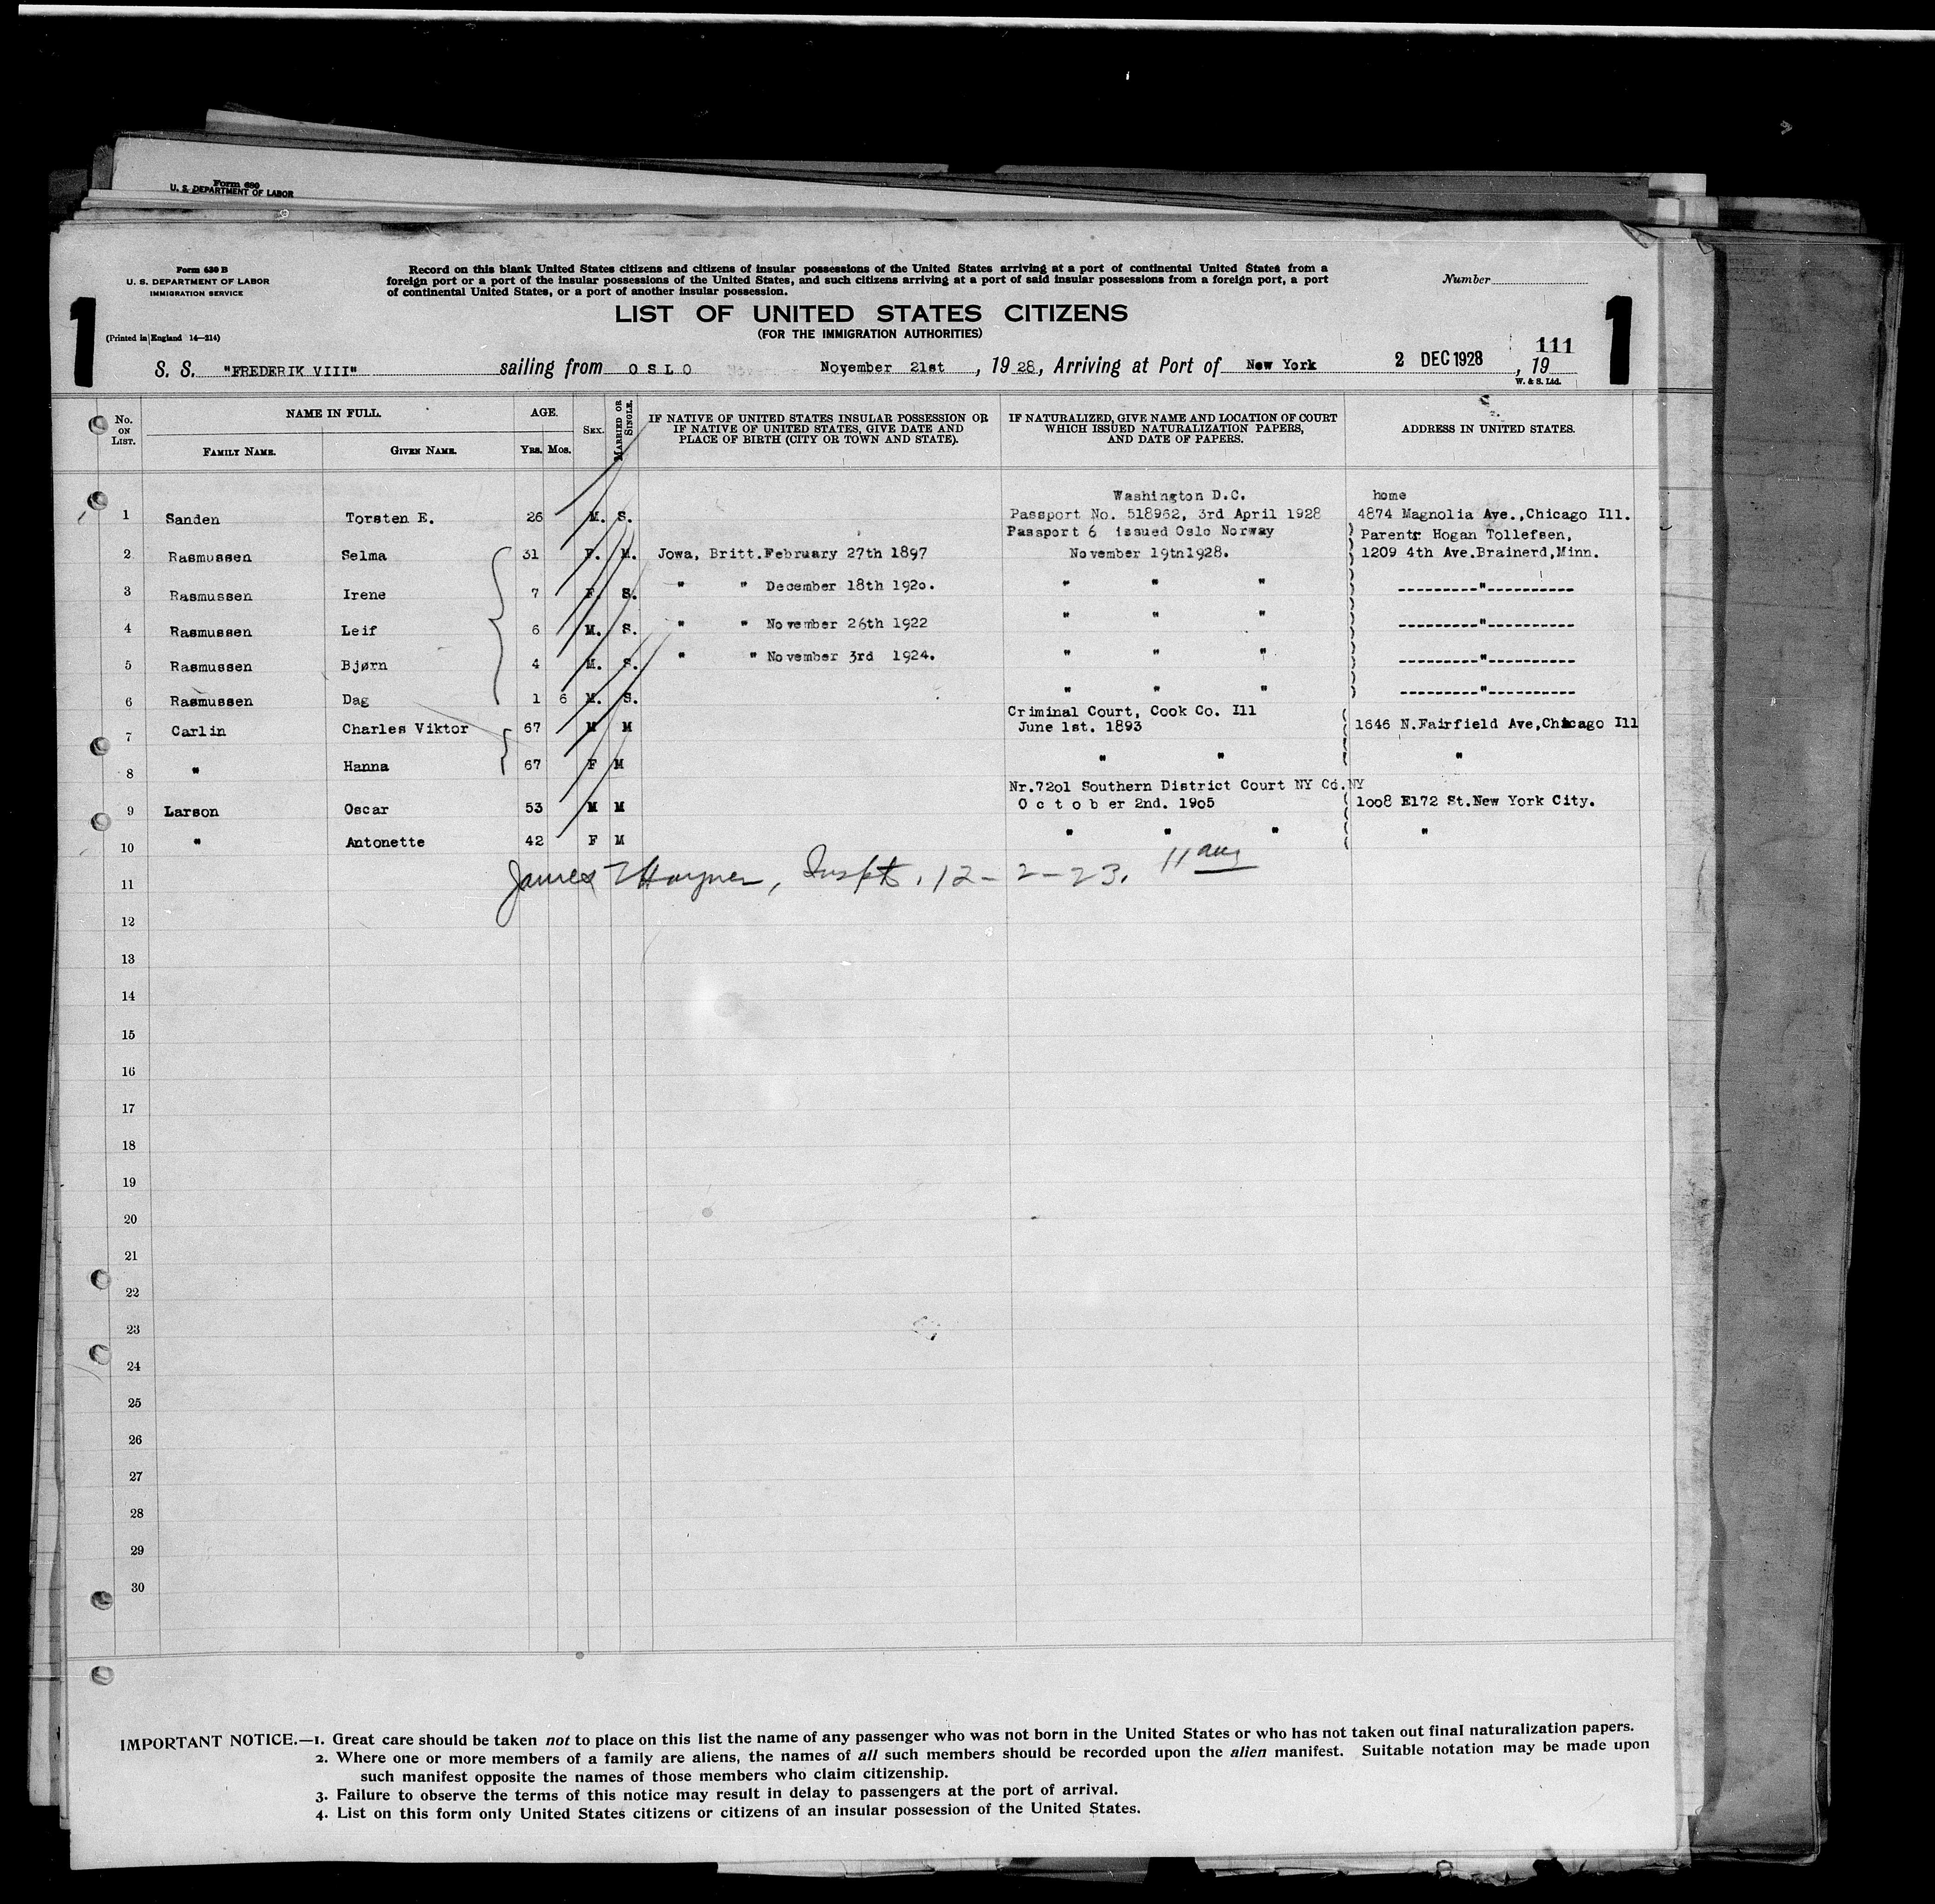 Form 680
U. S. DEPARTMENT OF LABOR
Form 630 B
U. S. DEPARTMENT OF LABOR
IMMIGRATION SERVICE
(Printed in England 14—214)
1
Record on this blank United States citizens and citizens of insular possessions of the United States arriving at a port of continental United States from a
foreign port or a port of the insular possessions of the United States, and such citizens arriving at a port of said insular possessions from a foreign port, a port
of continental United States, or a port of another insular possession.
Number
1
LIST OF UNITED STATES CITIZENS
(FOR THE IMMIGRATION AUTHORITIES)
111
S. S. "FREDERIK VIII" sailing from OSLO November 21st, 1928, Arriving at Port of New York 2 DEC 1928, 19
W. & S. Ltd.
No. ON LIST. NAME IN FULL. AGE. SEX. MARRIED OR SINGLE. IF NATIVE OF UNITED STATES INSULAR POSSESSION OR IF NATIVE OF UNITED STATES, GIVE DATE AND PLACE OF BIRTH (CITY OR TOWN AND STATE). IF NATURALIZED, GIVE NAME AND LOCATION OF COURT WHICH ISSUED NATURALIZATION PAPERS, AND DATE OF PAPERS. ADDRESS IN UNITED STATES.
FAMILY NAME. GIVEN NAME. YRS. MOS.
Washington D.C. home
1 Sanden Torsten E. 26 M. S. Passport No. 518962, 3rd April 1928 4874 Magnolia Ave.,Chicago Ill.
Passport 6 issued Oslo Norway Parents Hogan Tollefsen,
2 Rasmussen Selma 31 F. M. Jowa, Britt.February 27th 1897 November 19tn1928. 1209 4th Ave.Brainerd,Minn.
3 Rasmussen Irene 7 F. S. " " December 18th 192o. " " " ---------"----------
4 Rasmussen Leif 6 M. S. " " November 26th 1922 " " " ---------"----------
5 Rasmussen Bjørn 4 M. S. " " November 3rd 1924. " " " ---------"----------
6 Rasmussen Dag 1 6 M. S. " " " ---------"----------
Criminal Court, Cook Co. Ill
7 Carlin Charles Viktor 67 M M June 1st. 1893 1646 N.Fairfield Ave,Chicago Ill
8 " Hanna 67 F M " " "
Nr.72o1 Southern District Court NY Co.NY
9 Larson Oscar 53 M M O c t o b er 2nd. 19o5 1oo8 E172 St.New York City.
10 " Antonette 42 F M " " " "
James Hayner, Inspt. 12-2-23. 11 am
11
12
13
14
15
16
17
18
19
20
21
22
23
24
25
26
27
28
29
30
IMPORTANT NOTICE.—1. Great care should be taken not to place on this list the name of any passenger who was not born in the United States or who has not taken out final naturalization papers.
2. Where one or more members of a family are aliens, the names of all such members should be recorded upon the alien manifest. Suitable notation may be made upon
such manifest opposite the names of those members who claim citizenship.
3. Failure to observe the terms of this notice may result in delay to passengers at the port of arrival.
4. List on this form only United States citizens or citizens of an insular possession of the United States.